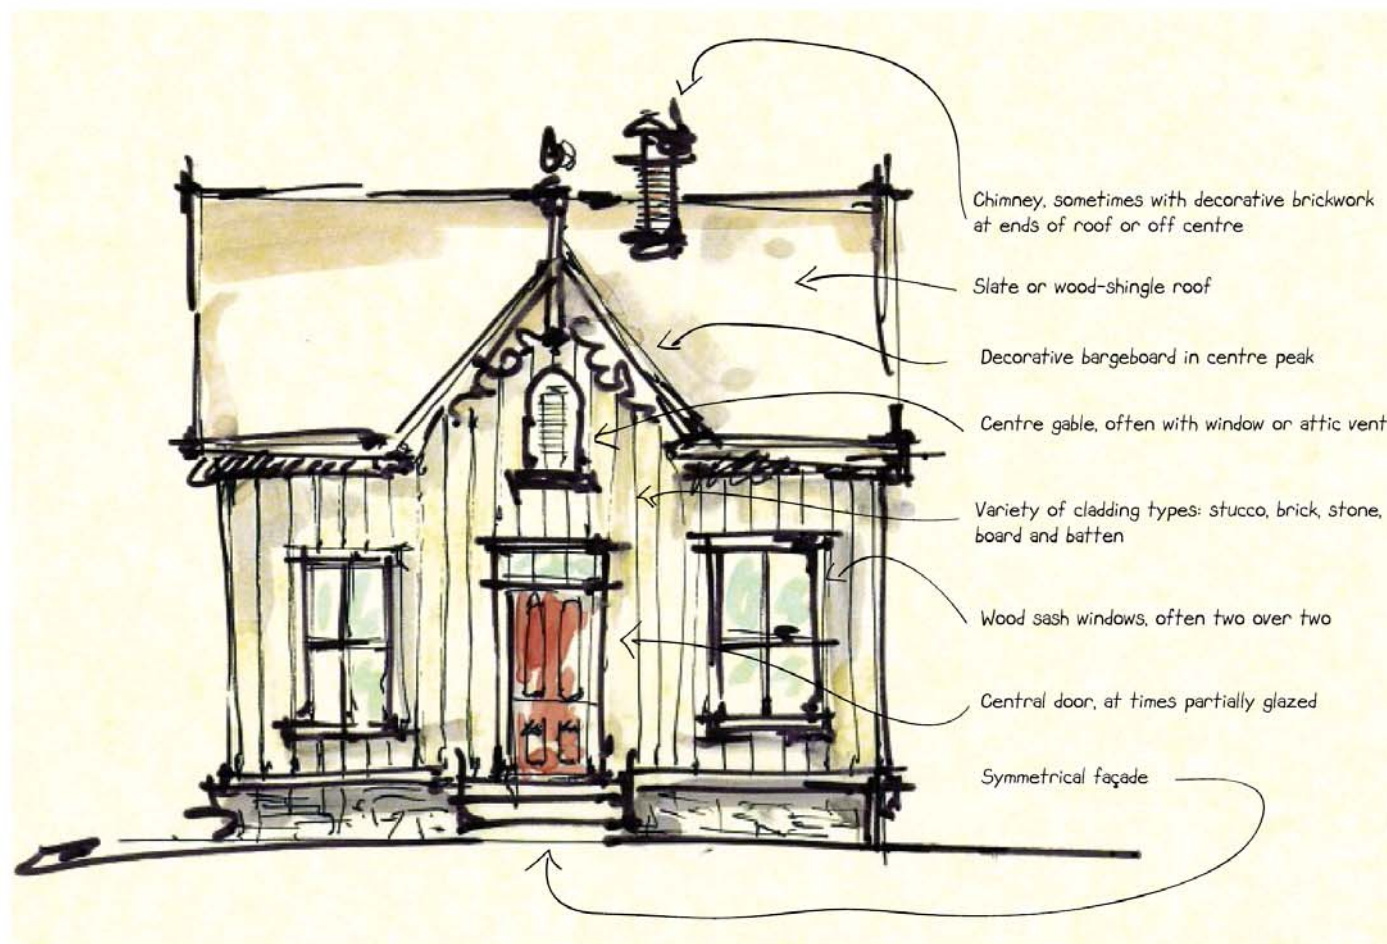 Chimney, sometimes with decorative brickwork
at ends of roof or off centre
Slate or wood-shingle roof
Decorative bargeboard in centre peak
Centre gable, often with window or attic vent
Variety of cladding types: stucco, brick, stone,
board and batten
Wood sash windows, often two over two
Central door, at times partially glazed
Symmetrical façade